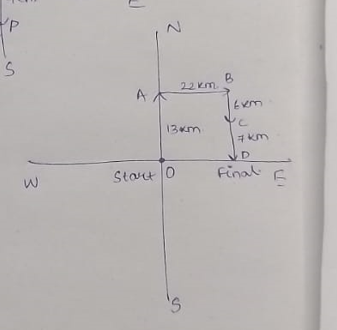 P
S
N
22km B
A
6km
C
13km
7km
D
W Start O Final E
S